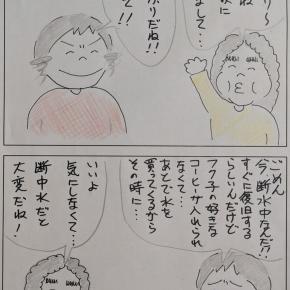 り〜
ね
まして…
りだね!!
て!!
ごめん
今断水中なんだ!!
すぐに復旧する
らしいんだけど
フク子の好きな
コーヒーが入れられ
なくて…
あとで水を
買ってくるから
その時に…
いいよ
気にしなくて…
断中水だと
大変だね!